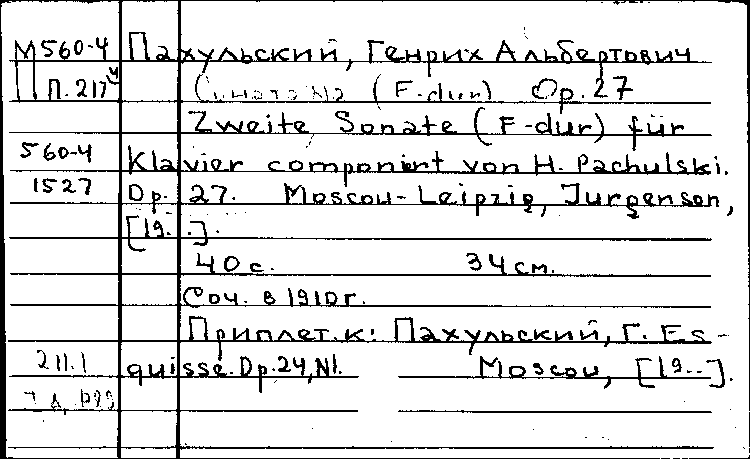 М560-4 Пахульский, Генрих Альбертович
П.217ч Соната №2 (F-dur) Op.27
Zweite Sonate (F-dur) für
560-4 Klavier componirt von H. Pachulski.
1527 Op. 27. Moscou-Leipzig, Jurgenson,
[19..].
40 с. 34 см.
Соч. в 1910г.
Приплет. к: Пахульский, Г. Es-
211.1 quisse. Op.24, N1. Moscou, [19..].